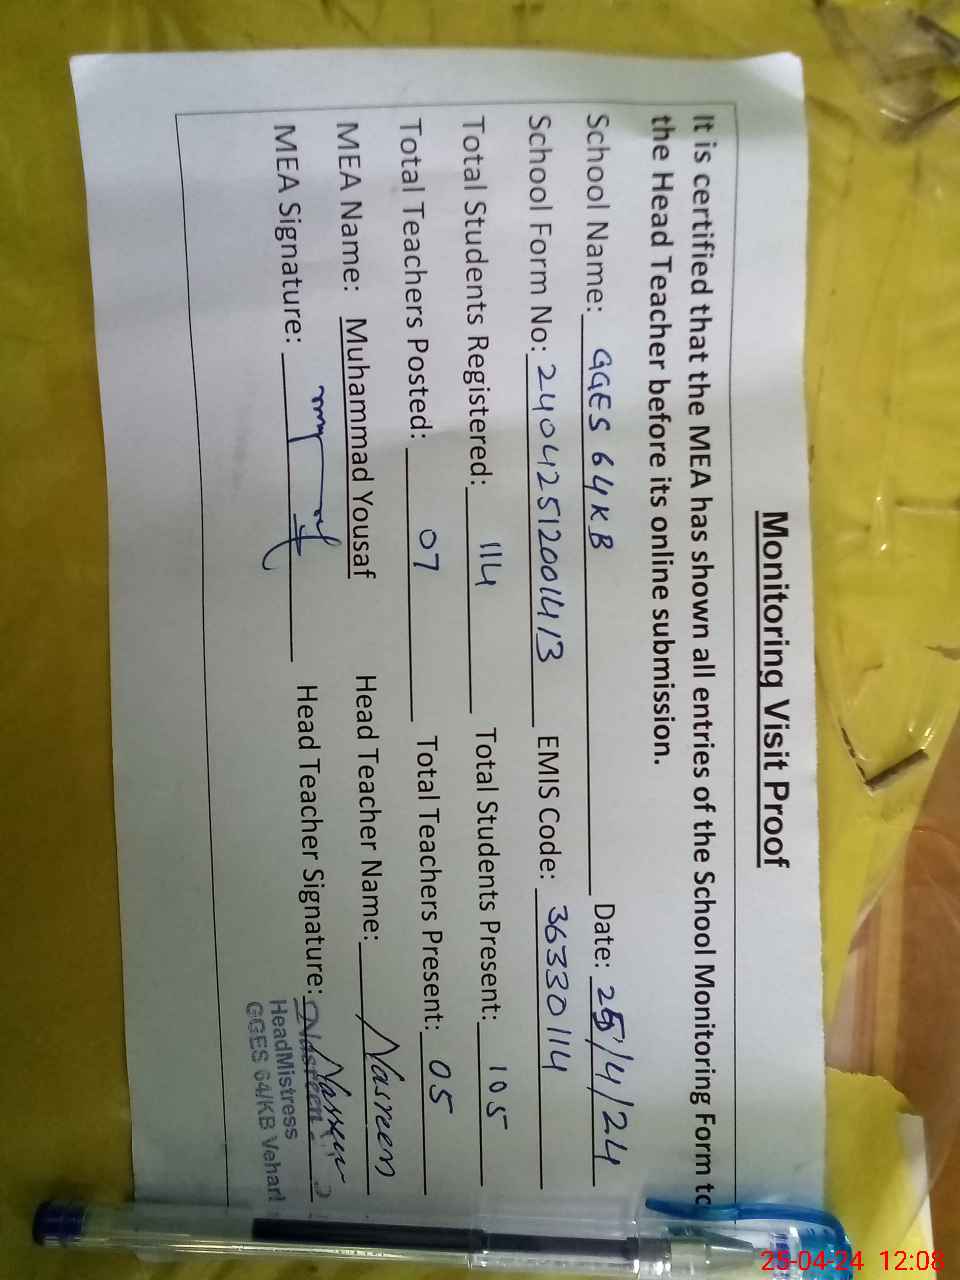 Monitoring Visit Proof
It is certified that the MEA has shown all entries of the School Monitoring Form to
the Head Teacher before its online submission.
School Name: GGES 64KB Date: 25/4/24
School Form No: 24042512001413 EMIS Code: 36330114
Total Students Registered: 114 Total Students Present: 105
Total Teachers Posted: 07 Total Teachers Present: 05
MEA Name: Muhammad Yousaf Head Teacher Name: Nasreen
MEA Signature: Head Teacher Signature: Nasreen
HeadMistress
GGES 64/KB Vehari
25-04-24 12:08